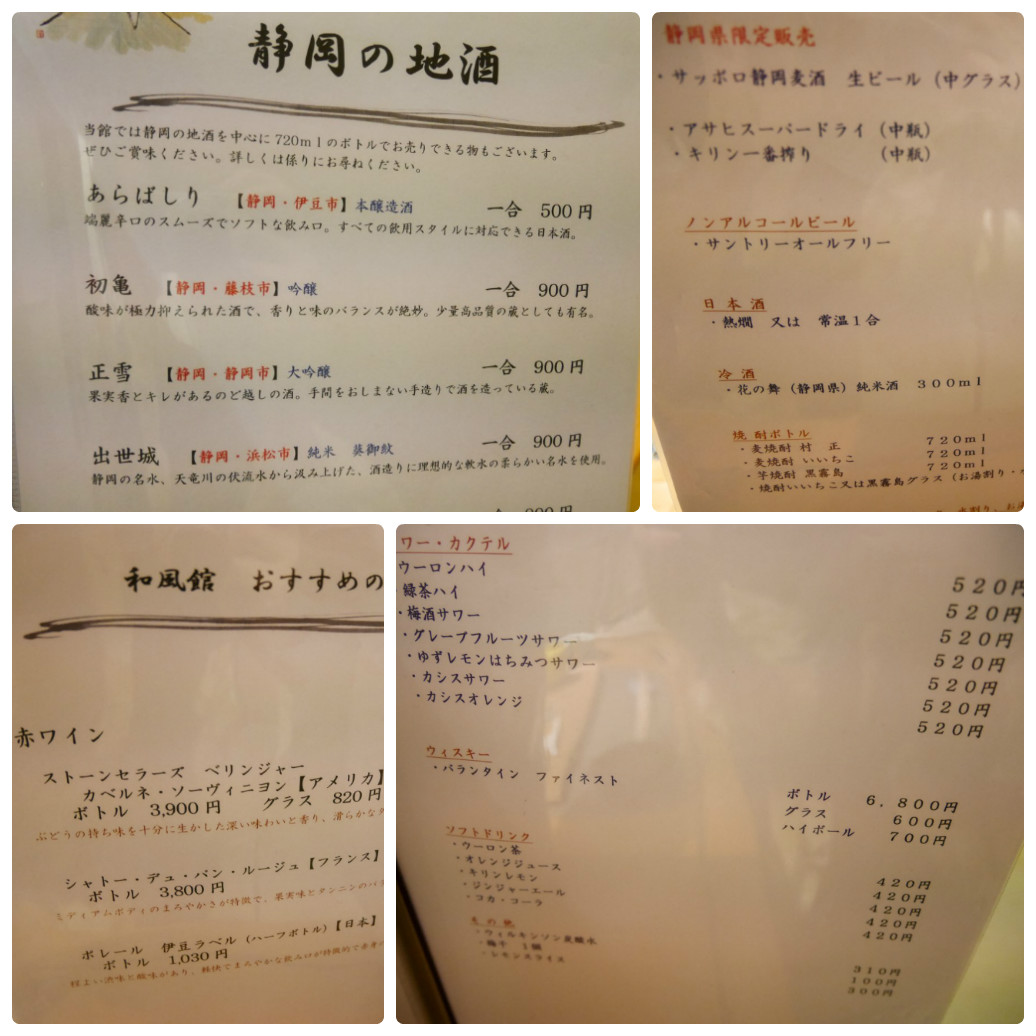 静岡の地酒
当館では静岡の地酒を中心に720mlのボトルでお売りできる物もございます。
ぜひご賞味ください。詳しくは係りにお尋ねください。
あらばしり 【静岡・伊豆市】本醸造酒 一合 500円
端麗辛口のスムーズでソフトな飲み口。すべての飲用スタイルに対応できる日本酒。
初亀 【静岡・藤枝市】吟醸 一合 900円
酸味が極力抑えられた酒で、香りと味のバランスが絶妙。少量高品質の蔵としても有名。
正雪 【静岡・静岡市】大吟醸 一合 900円
果実香とキレがあるのど越しの酒。手間をおしまない手造りで酒を造っている蔵。
出世城 【静岡・浜松市】純米 葵御紋 一合 900円
静岡の名水、天竜川の伏流水から汲み上げた、酒造りに理想的な軟水の柔らかい名水を使用。
静岡県限定販売
・サッポロ静岡麦酒 生ビール(中グラス)
・アサヒスーパードライ(中瓶)
・キリン一番搾り (中瓶)
ノンアルコールビール
・サントリーオールフリー
日本酒
・熱燗 又は 常温1合
冷酒
・花の舞(静岡県)純米酒 300ml
焼酎ボトル
・麦焼酎 村 正 720ml
・麦焼酎 いいちこ 720ml
・芋焼酎 黒霧島 720ml
・焼酎いいちこ又は黒霧島グラス(お湯割り・
水割り、お
和風館 おすすめの
赤ワイン
ストーンセラーズ ベリンジャー
カベルネ・ソーヴィニヨン【アメリカ】
ボトル 3,900円 グラス 820円
ぶどうの持ち味を十分に生かした深い味わいと香り、滑らかな
シャトー・デュ・パン・ルージュ【フランス】
ボトル 3,800円
ミディアムボディのまろやかさが特徴で、果実味とタンニンのバ
ボレール 伊豆ラベル(ハーフボトル)【日本】
ボトル 1,030円
程よい渋味と酸味があり、軽快でまろやかな飲み口が特徴的で
ワー・カクテル
ウーロンハイ 520円
・緑茶ハイ 520円
・梅酒サワー 520円
・グレープフルーツサワー 520円
・ゆずレモンはちみつサワー 520円
・カシスサワー 520円
・カシスオレンジ 520円
ウィスキー
・バランタイン ファイネスト
ボトル 6,800円
グラス 600円
ハイボール 700円
ソフトドリンク
・ウーロン茶 420円
・オレンジジュース 420円
・キリンレモン 420円
・ジンジャーエール 420円
・コカ・コーラ 420円
その他
・ウィルキンソン炭酸水 310円
・梅干 1個 100円
・レモンスライス 300円